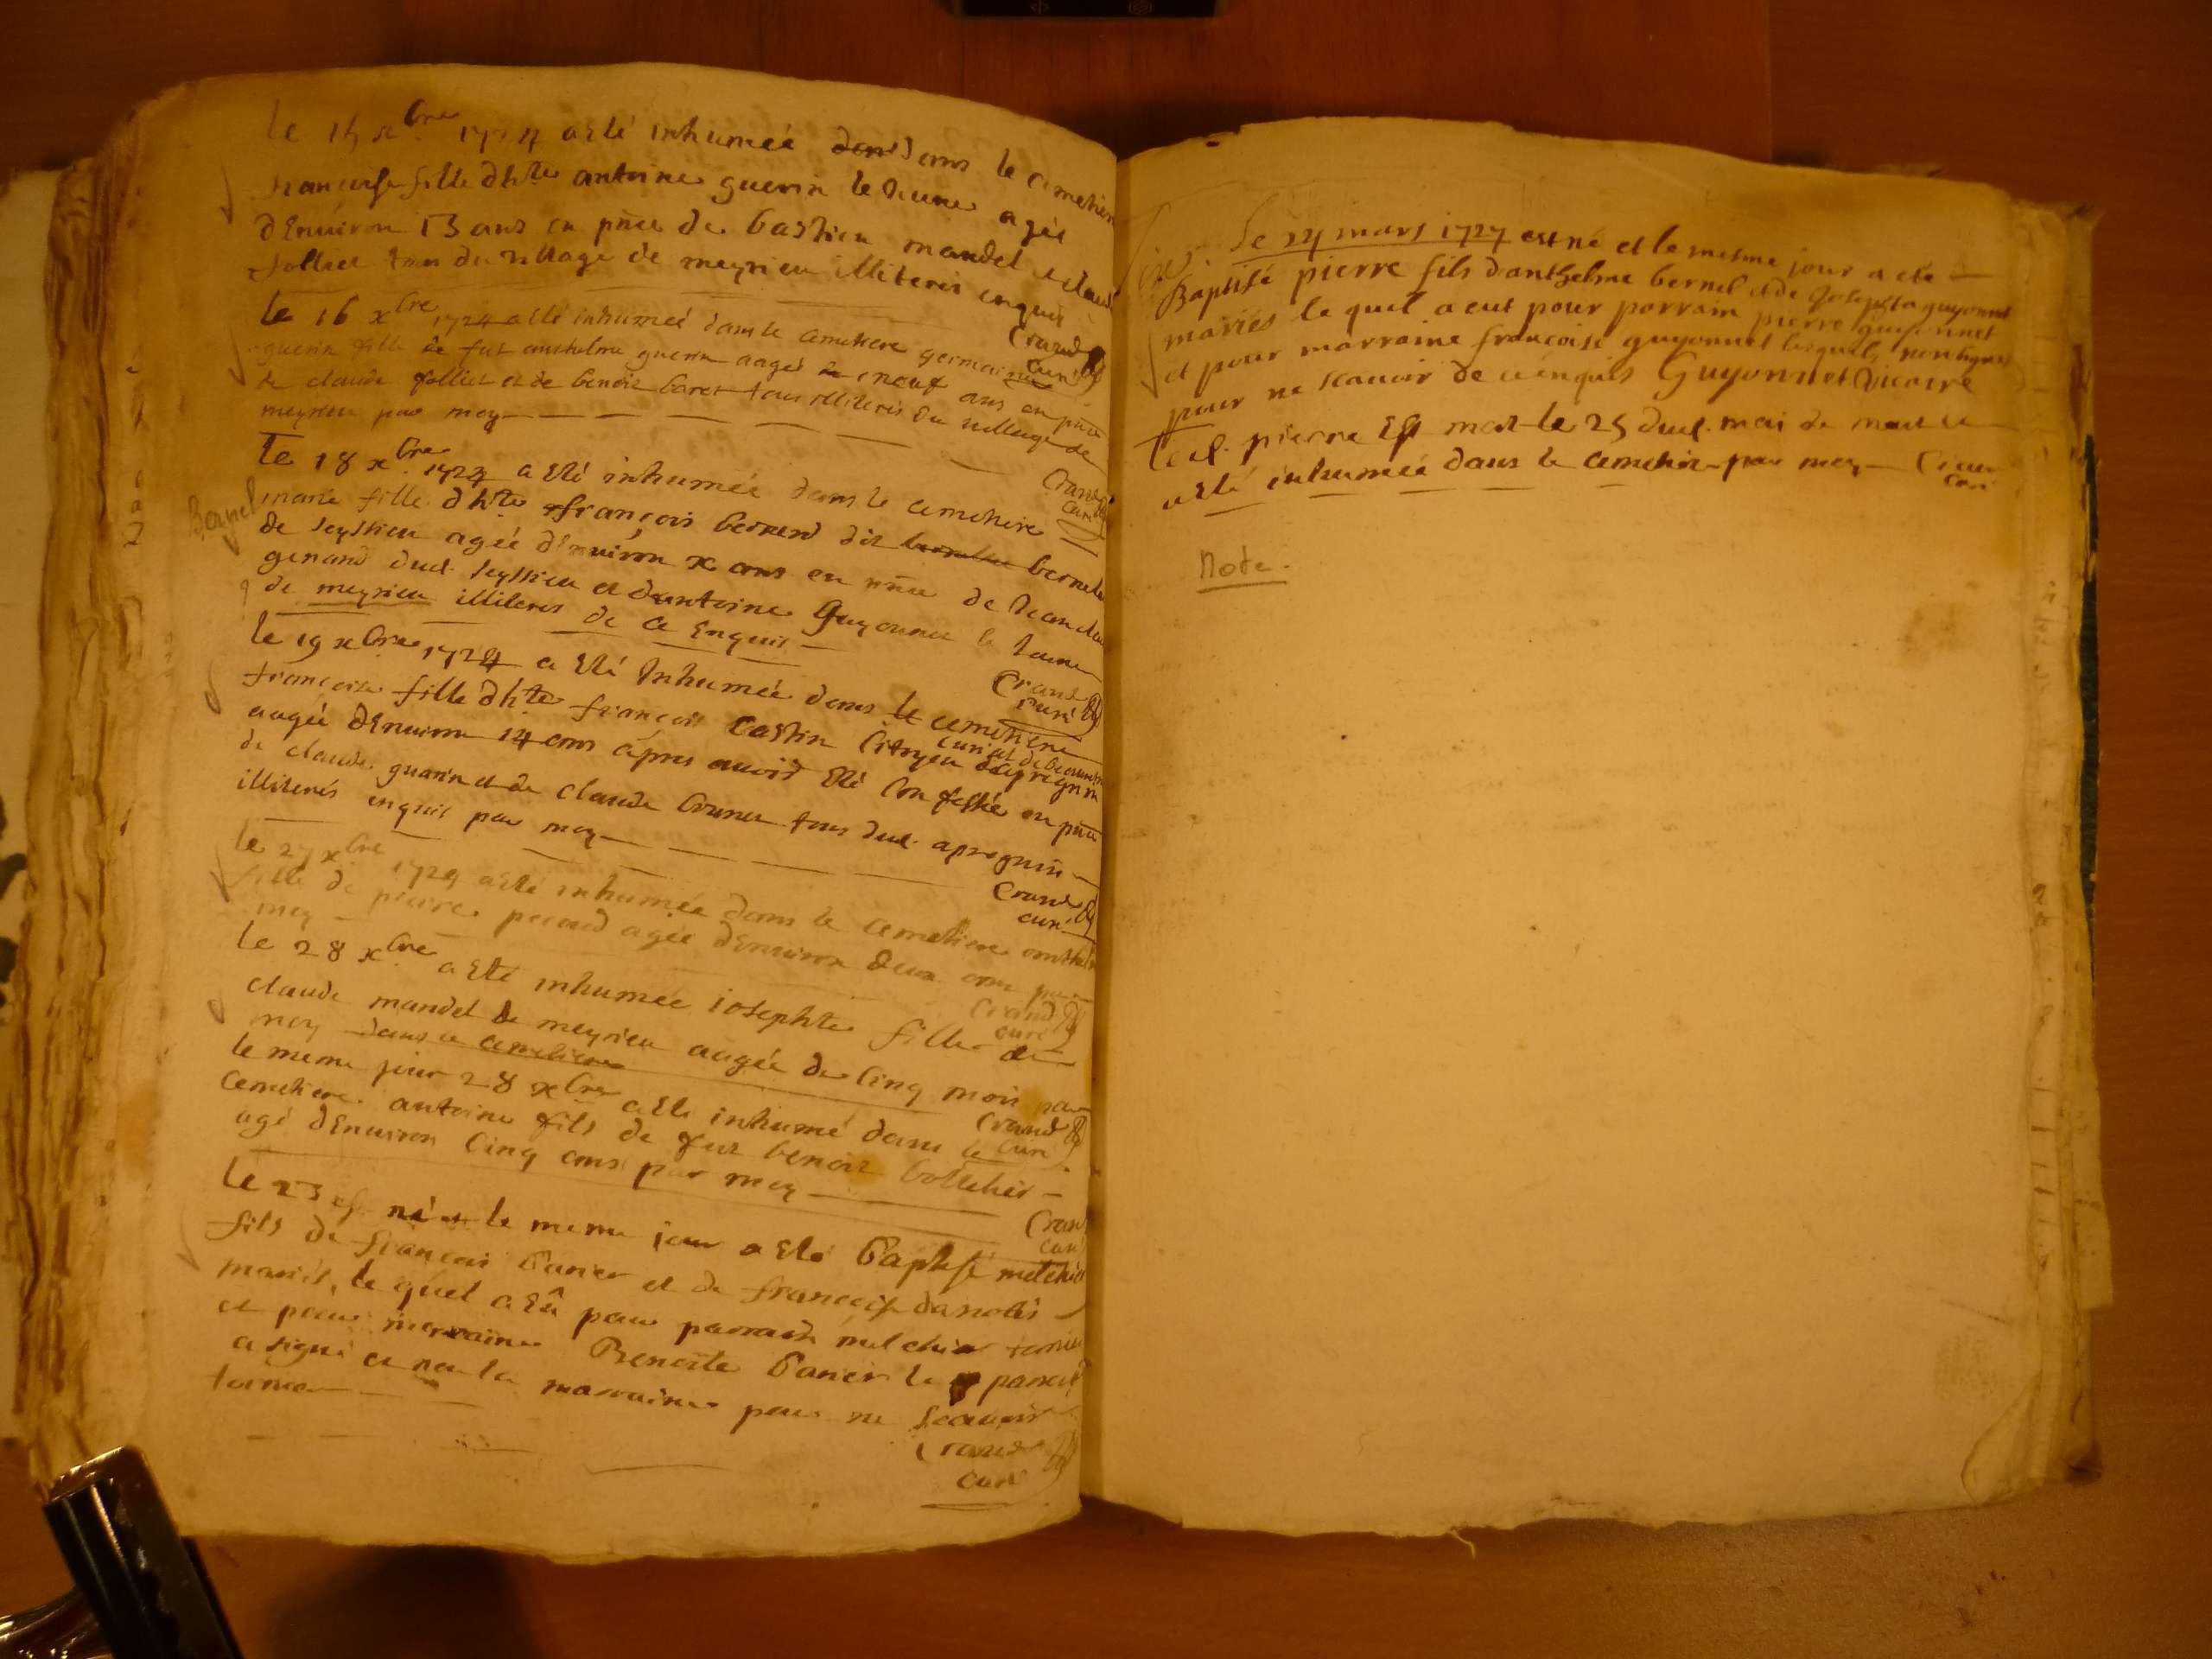 le 15 xbre 1724 a esté inhumeé dans le cimetiere
francoise fille dhte antoine guerin le Jeune agée
dEnuiron 13 ans en pñce de bastien mandel et claude
follier tous du village de meyrieu illiteres enquis
Crand
Curé
le 16 xbre 1724 a esté inhumeé dans le cemetiere germaine
guerin fille de fut anthelme guerin aageé de neuf ans en pñce
de claude follier et de benoit baret tous illiteres du village de
meyrieu par moy
Crand
Curé
Bernel
le 18 xbre 1724 a Eté inhumée dans le cemetiere
marie fille dhte françois bernerd dit bernel
de seyssieu ageé dEnuiron x ans en pñce de Jean claude
genand dud. seyssieu et dantoine Guyonnet le Jeune
de meyrieu illiteres de ce Enquis
Crand
Curé
le 19 xbre 1724 a Eté Inhumeé dans le cemetiere
françoise fille dhte françois Castin Citoyen
aageé dEnuiron 14 ans apres auoir Eté Confessée en pñce
de claude guerin et de claude brunet tous dud. apregnin
illiterés enquis par moy
Crand
curé
le 27 xbre 1724 a Eté inhumée dans le cemetiere
fille de pierre peraud agée dEnuiron deux ans par
moy
Crand
curé
le 28 xbre a Eté inhumée iosephte fille de
claude mandel de meyrieu aagée de Cinq mois par
moy dans ce cemetiere
Crand
Curé
le meme jour 28 xbre a Eté inhumé dans le
Cemetiere antoine fils de fut benoit
agé dEnuiron Cinq ans par moy
Crand
Curé
le 23 est né et le meme jour a Eté Baptisé melchior
fils de françois Panier et de françoise
mariés, le quel a Eû pour parrain melchior
et pour marraine Benoite Panier le parrain
a signé et non la marraine pour ne scauoir
Crand
Curé
Le 24 mars 1727 est né et le mesme jour a eté
Baptisé pierre fils danthelme bernel et de Josephta guyonnet
mariés le quel a eut pour parrain pierre guyonnet
et pour marraine françoise guyonnet lesquels non signé
pour ne scauoir de ce enquis Guyonnet Vicaire
Led. pierre Est mort le 25 dud. mai de
a Eté inhumeé dans le cemetiere par moy Crand
Curé
Note.